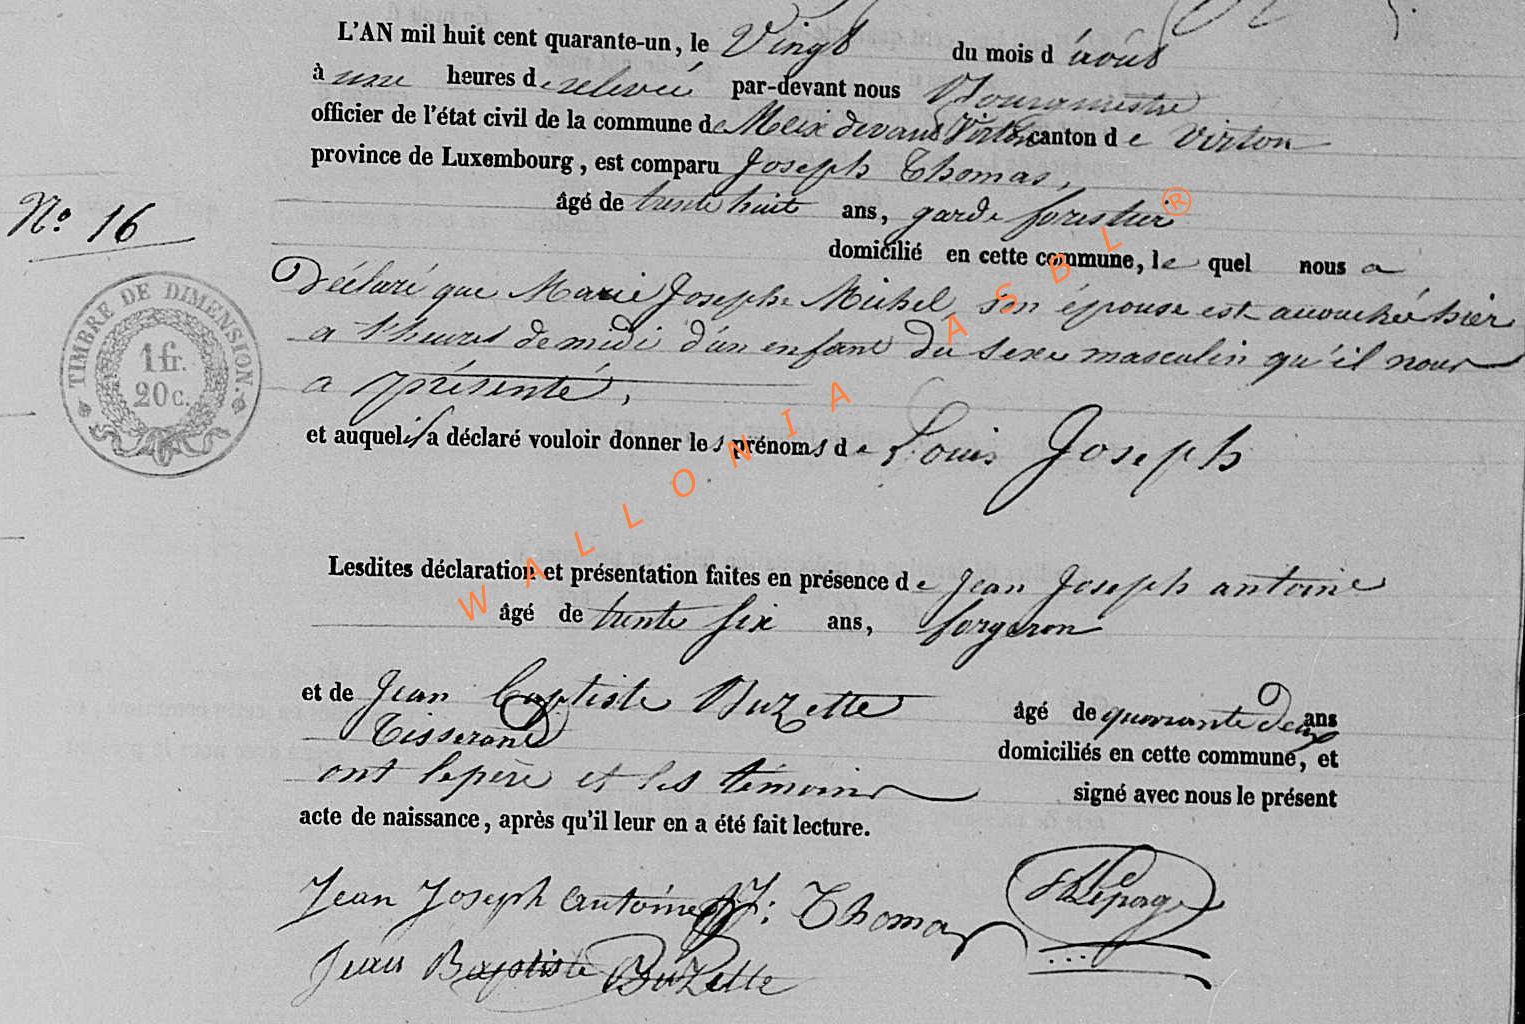 L'AN mil huit cent quarante-un, le Vingt du mois d'août
à une heures de relevée par-devant nous Bourgmestre
officier de l'état civil de la commune de Meix devant Virton canton de Virton
province de Luxembourg, est comparu Joseph Thomas,
âgé de trente huit ans, garde forestier
domicilié en cette commune, le quel nous a
N° 16
Déclaré que Marie Josephe Michel, son épouse est accouchée hier
a heures de midi d'un enfant du sexe masculin qu'il nous
a présenté,
TIMBRE DE DIMENSION.
1 fr.
20 c.
et auquel il a déclaré vouloir donner les prénoms de Louis Joseph
Lesdites déclaration et présentation faites en présence de Jean Joseph antoine
âgé de trente six ans, forgeron
et de Jean Baptiste Buzette âgé de quarante deux ans
Tisserand domiciliés en cette commune, et
ont le père et les témoins signé avec nous le présent
acte de naissance, après qu'il leur en a été fait lecture.
Jean Joseph Antoine J: Thomas Lepage
Jean Baptiste Buzette
WALLONIA ASBL ®